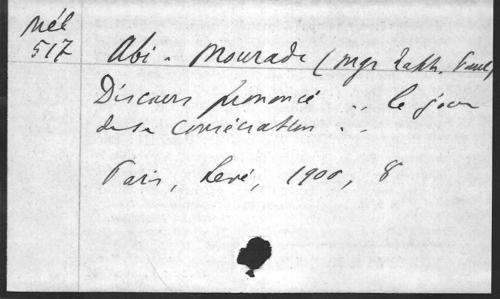 Mél
517
Abi-Mourade (Mgr Zakh. Paul)
Discours prononcé .. le jour
de sa consécration ..
Paris, Levé, 1900, 8